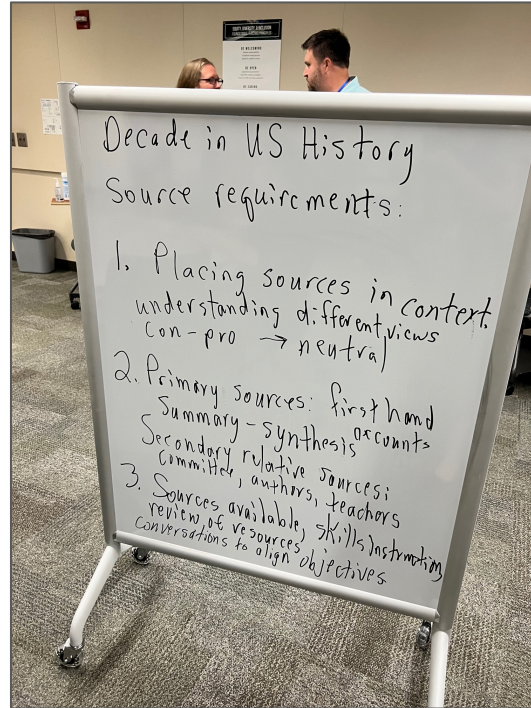 EQUITY, DIVERSITY, & INCLUSION
BE WELCOMING
BE OPEN
Decade in US History
Source requirements:
1. Placing sources in context.
understanding different views
con-pro → neutral
2. Primary sources: firsthand
accounts
Summary - synthesis
Secondary relative sources:
committee, authors, teachers
3. Sources available, skills Instruction,
review of resources
conversations to align objectives